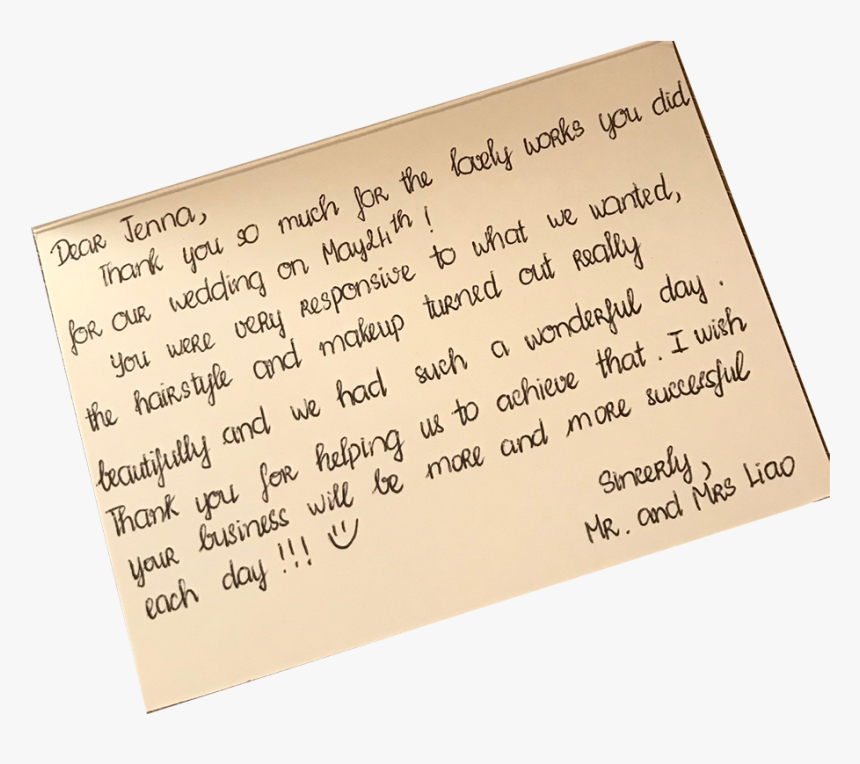 Dear Jenna,
Thank you so much for the lovely works you did
for our wedding on May24th !
You were very responsive to what we wanted,
the hairstyle and makeup turned out really
beautifully and we had such a wonderful day .
Thank you for helping us to achieve that . I wish
your business will be more and more successful
each day !!!
Sincerly,
Mr. and Mrs Liao